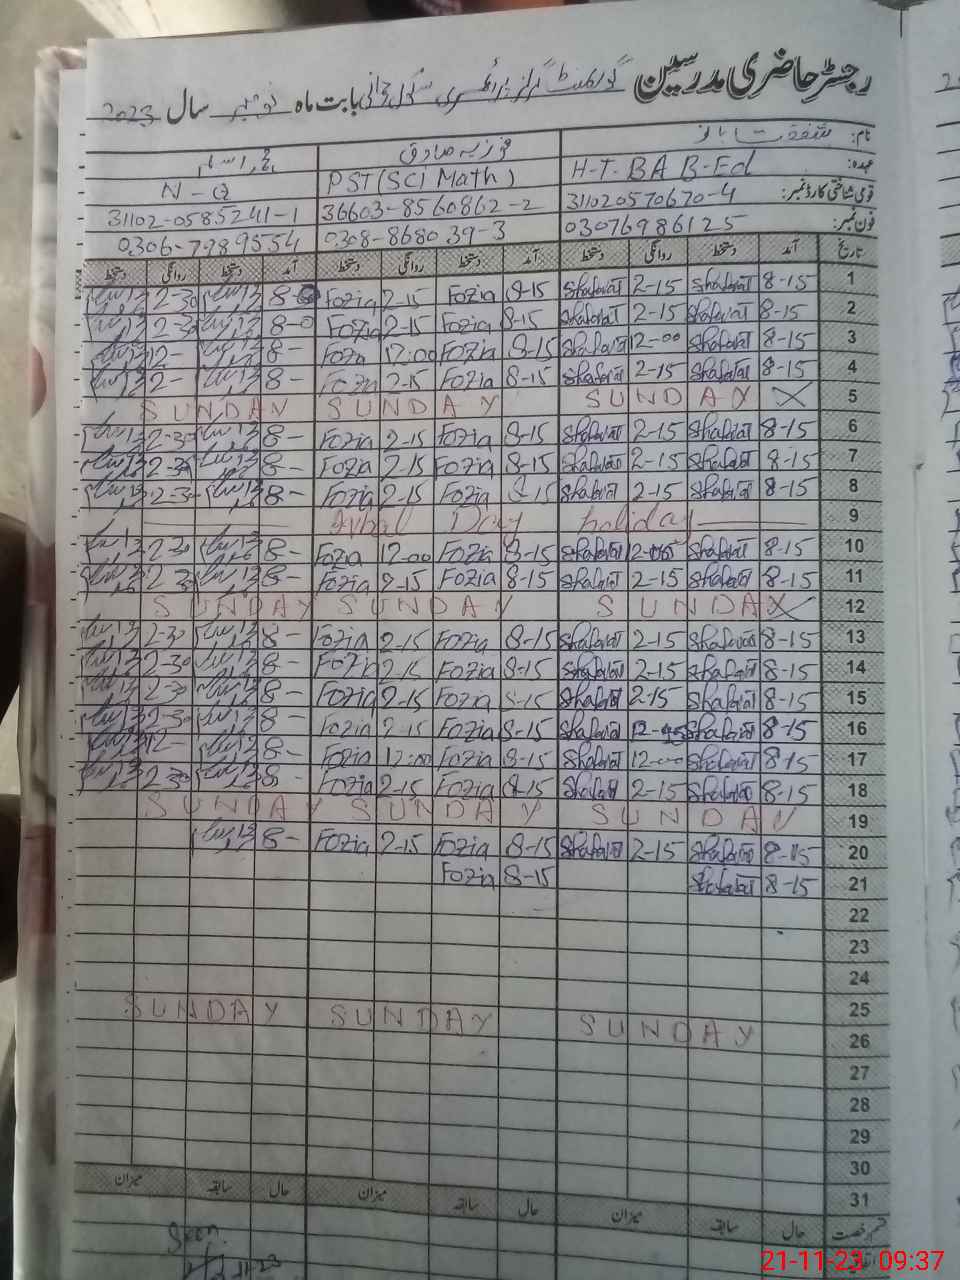 رجسٹر حاضری مدرسین گورنمنٹ گرلز پرائمری سکول بابت ماہ نومبر سال 2023
نام: شفقت بانو فوزیہ صادق اسلم
عہدہ: H-T-BA B-Ed PST (SCI Math) N-Q
قومی شناختی کارڈ نمبر: 311020570670-4 36603-8560862-2 31102-0585241-1
فون نمبر: 03076986125 0308-868039-3 0306-7989554
تاریخ آمد دستخط روانگی دستخط آمد دستخط روانگی دستخط آمد دستخط روانگی دستخط
1 8-15 Shafaqat 2-15 Shafaqat 8-15 Fozia 2-15 Fozia 2-30
2 8-15 Shafaqat 2-15 Shafaqat 8-15 Fozia 2-15 Fozia 8-0 2-30
3 8-15 Shafaqat 12-00 Shafaqat 8-15 Fozia 12:00 Fozia 8- 12-
4 8-15 Shafaqat 2-15 Shafaqat 8-15 Fozia 2-15 Fozia 8- 2-
5 SUNDAY SUNDAY SUNDAY
6 8-15 Shafaqat 2-15 Shafaqat 8-15 Fozia 2-15 Fozia 8- 2-30
7 8-15 Shafaqat 2-15 Shafaqat 8-15 Fozia 2-15 Fozia 8- 2-30
8 8-15 Shafaqat 2-15 Shafaqat 8-15 Fozia 2-15 Fozia 8- 2-30
9 Iqbal Day holiday
10 8-15 Shafaqat Shafaqat 8-15 Fozia 12-00 Fozia 8- 2-30
11 8-15 Shafaqat 2-15 Shafaqat 8-15 Fozia 2-15 Fozia 8- 2-30
12 SUNDAY SUNDAY SUNDAY
13 8-15 Shafaqat 2-15 Shafaqat 8-15 Fozia 2-15 Fozia 8- 2-30
14 8-15 Shafaqat 2-15 Shafaqat 8-15 Fozia 2-15 Fozia 8- 2-30
15 8-15 Shafaqat 2-15 Shafaqat 8-15 Fozia 2-15 Fozia 8- 2-30
16 8-15 Shafaqat Shafaqat 8-15 Fozia 2-15 Fozia 8- 2-30
17 8-15 Shafaqat 12-00 Shafaqat 8-15 Fozia 12:00 Fozia 8- 12-
18 8-15 Shafaqat 2-15 Shafaqat 8-15 Fozia 2-15 Fozia 8- 2-30
19 SUNDAY SUNDAY SUNDAY
20 8-15 Shafaqat 2-15 Shafaqat 8-15 Fozia 2-15 Fozia 8-
21 8-15 Shafaqat 8-15 Fozia
22
23
24
25
26 SUNDAY SUNDAY SUNDAY
27
28
29
30
31
قسم رخصت حال سابقہ میزان حال سابقہ میزان حال سابقہ میزان
Seen
21-11-23 09:37